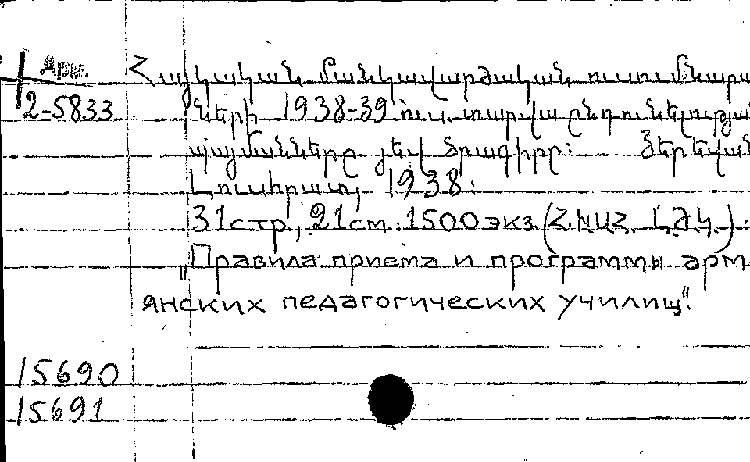 Арм. Հայկական մանկավարժական ուսումնարան
2-5833 ների 1938-39 ուս. տարվա ընդունելության
պայմանները յեվ ծրագիրը: Յերեվան
Լուսհրատ, 1938:
31 стр., 21 см. 1500 экз. (ՀԽՍՀ ԼԺԿ).
„Правила приема и программы арм-
янских педагогических училищ".
15690
15691